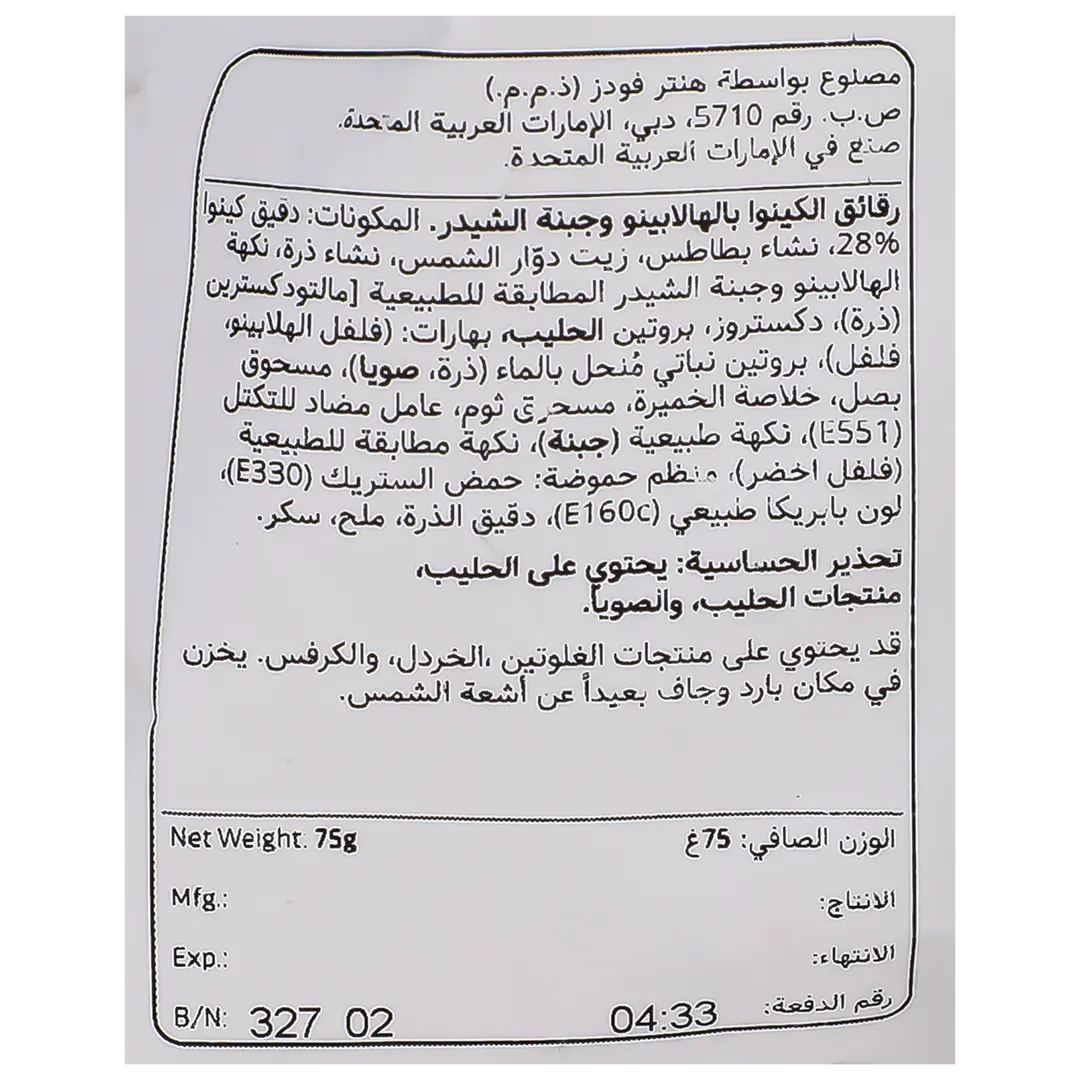 مصنوع بواسطة هنتر فودز (ذ.م.م.)
ص.ب. رقم 5710، دبي، الإمارات العربية المتحدة.
صنع في الإمارات العربية المتحدة.
رقائق الكينوا بالهالابينو وجبنة الشيدر. المكونات: دقيق كينوا
28%، نشاء بطاطس، زيت دوّار الشمس، نشاء ذرة، نكهة
الهالابينو وجبنة الشيدر المطابقة للطبيعية [مالتودكسترين
(ذرة)، دكستروز، بروتين الحليب، بهارات: (فلفل الهلابينو،
فلفل)، بروتين نباتي مُنحل بالماء (ذرة، صويا)، مسحوق
بصل، خلاصة الخميرة، مسحوق ثوم، عامل مضاد للتكتل
(E551)، نكهة طبيعية (جبنة)، نكهة مطابقة للطبيعية
(فلفل اخضر)، منظم حموضة: حمض الستريك (E330)،
لون بابريكا طبيعي (E160c)، دقيق الذرة، ملح، سكر.
تحذير الحساسية: يحتوي على الحليب،
منتجات الحليب، والصويا.
قد يحتوي على منتجات الغلوتين ،الخردل، والكرفس. يخزن
في مكان بارد وجاف بعيداً عن أشعة الشمس.
Net Weight: 75g الوزن الصافي: 75غ
Mfg.: الانتاج:
Exp.: الانتهاء:
B/N: 327 02 04:33 رقم الدفعة: